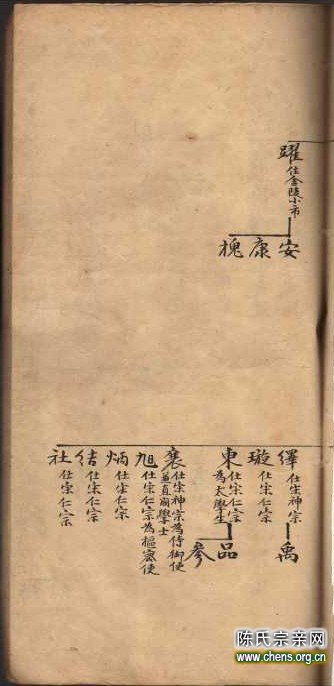 躍 住金陵小市
安 康 槐
繹 仕宋神宗
禹
璇 仕宋仁宗
東 仕宋仁宗為太學生
品 參
襄 仕宋神宗為侍御使並直廟學士
旭 仕宋仁宗為樞密使
炳 仕宋仁宗
結 仕宋仁宗
社 仕宋仁宗
陈氏宗亲网
www.chens.org.cn